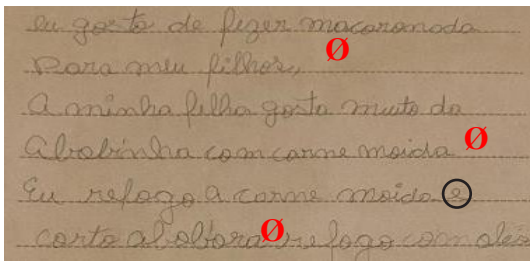 eu gosto de fizer macaronada
para meu filhos,, Ø
A minha filha gosta muito da
Abobrinha com carne moida Ø
Eu refogo a carne moida e
corto al Ø refogo com oleo